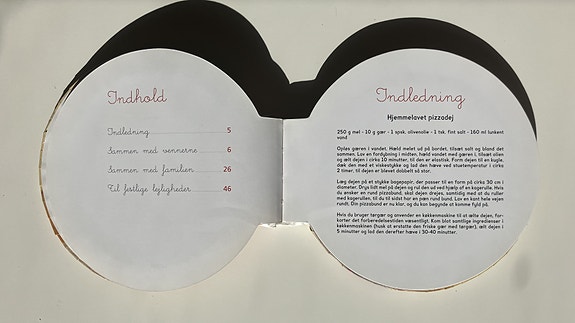 Indhold
Indledning 5
Sammen med vennerne 6
Sammen med familien 26
Til festlige lejligheder 46
Indledning
Hjemmelavet pizzadej
250 g mel - 10 g gær - 1 spsk. olivenolie - 1 tsk. fint salt - 160 ml lunkent
vand
Opløs gæren i vandet. Hæld melet ud på bordet, tilsæt salt og bland det
sammen. Lav en fordybning i midten, hæld vandet med gæren i, tilsæt olien
og ælt dejen i cirka 10 minutter, til den er elastisk. Form dejen til en kugle,
dæk den med et viskestykke og lad den hæve ved stuetemperatur i cirka
2 timer, til dejen er blevet dobbelt så stor.
Læg dejen på et stykke bagepapir, der passer til en form på cirka 30 cm i
diameter. Drys lidt mel på dejen og rul den ud ved hjælp af en kagerulle. Hvis
du ønsker en rund pizzabund, skal dejen drejes, samtidig med at du ruller
med kagerullen, til du til sidst har en pæn rund bund. Lav en kant hele vejen
rundt. Din pizzabund er nu klar, og du kan begynde at komme fyld på.
Hvis du bruger tørgær og anvender en køkkenmaskine til at ælte dejen, for-
kortes forberedelsestiden væsentligt. Kom blot samtlige ingredienser i
køkkenmaskinen (husk at erstatte den friske gær med tørgær), ælt dejen i
5 minutter og lad den derefter hæve i 30-40 minutter.